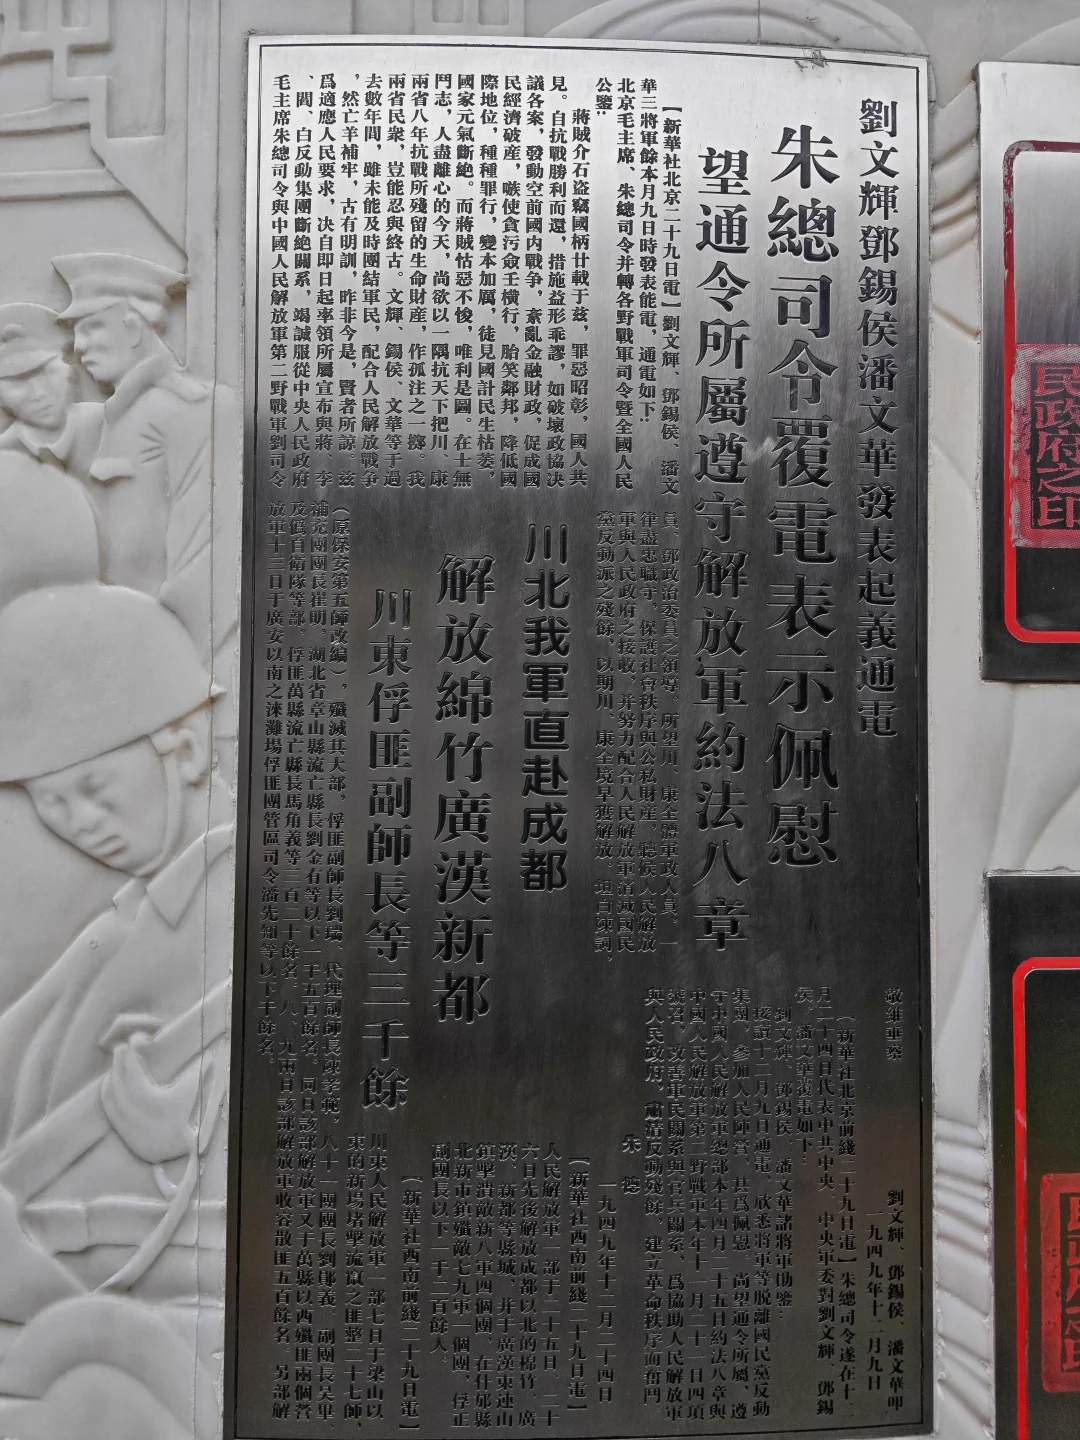 劉文輝鄧錫侯潘文華發表起義通電
朱總司令覆電表示佩慰
望通令所屬遵守解放軍約法八章
【新華社北京二十九日電】劉文輝、鄧錫侯、潘文
華三將軍餘本月九日時發表能電，通電如下：
北京毛主席、朱總司令并轉各野戰軍司令暨全國人民
公鑒：
蔣賊介石盜竊國柄廿載于兹，罪惡昭彰，國人共
見。自抗戰勝利而還，措施益形乖謬，如破壞政協決
議各案，發動空前國内戰争，紊亂金融財政，促成國
民經濟破産，嗾使貪污僉壬橫行，胎笑鄰邦，降低國
際地位，種種罪行，變本加厲，徒見國計民生枯萎，
國家元氣斷絶。而蔣賊怙惡不悛，唯利是圖。在士無
鬥志，人盡離心的今天，尚欲以一隅抗天下把川、康
兩省八年抗戰所殘留的生命財産，作孤注之一擲。我
兩省民衆，豈能忍與終古。文輝、錫侯、文華等于過
去數年間，雖未能及時團結軍民，配合人民解放戰争
，然亡羊補牢，古有明訓，昨非今是，賢者所諒。兹
爲適應人民要求，决自即日起率領所屬宣布與蔣、李
、閻、白反動集團斷絶關系，竭誠服從中央人民政府
毛主席朱總司令與中國人民解放軍第二野戰軍劉司令
員、鄧政治委員之領導。所望川、康全體軍政人員，一
律盡忠職守，保護社會秩序與公私財産，聽候人民解放
軍與人民政府之接收，并努力配合人民解放軍消滅國民
黨反動派之殘餘，以期川、康全境早獲解放。坦白陳詞，
敬維垂察
劉文輝、鄧錫侯、潘文華叩
一九四九年十二月九日
【新華社北京前綫二十九日電】朱總司令遂在十二
月二十四日代表中共中央、中央軍委對劉文輝、鄧錫
侯、潘文華復電如下：
劉文輝、鄧錫侯、潘文華諸將軍勛鑒：
接讀十二月九日通電，欣悉將軍等脱離國民黨反動
集團，參加人民陣營，甚爲佩慰。尚望通令所屬，遵
守中國人民解放軍總部本年四月二十五日約法八章與
中國人民解放軍第二野戰軍本年十一月二十一日四項
號召，改善軍民關系與官兵關系，爲協助人民解放軍
與人民政府，肅清反動殘餘，建立革命秩序而奮鬥
朱 德
一九四九年十二月二十四日
川北我軍直赴成都
解放綿竹廣漢新都
【新華社西南前綫二十九日電】
人民解放軍一部于二十五日、二十
六日先後解放成都以北的棉竹、廣
漢、新都等縣城，并于廣漢東連山
鎮擊潰敵新八軍四個團，在什邡縣
北新市鎮殲敵七九軍一個團，俘正
副團長以下一千二百餘人。
川東俘匪副師長等三千餘
【新華社西南前綫二十九日電】
川東人民解放軍一部七日于梁山以
東的新場堵擊流竄之匪整二十七師，
（原保安第五師改編），殲滅其大部，俘匪副師長劉瑞、代理副師長陳孝範，八十一團團長劉鄖義、副團長吴畢、
補充團團長崔明，湖北省章山縣流亡縣長劉金有等以下一千五百餘名。同日該部解放軍又于萬縣以西殲匪兩個營
及僞自衛隊等部，俘匪萬縣流亡縣長馬角義等三百二十餘名。八、九兩日該部解放軍收容散匪五百餘名。另部解
放軍十三日于廣安以南之涞灘場俘匪團管區司令潘先知等以下千餘名。
民政府之印